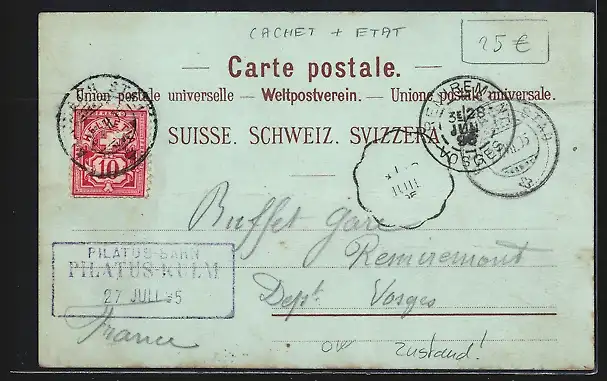 CACHET + ETAT
25 €
Carte postale.
Union postale universelle. – Weltpostverein. – Unione postale universale.
SUISSE. SCHWEIZ. SVIZZERA.
HELVETIA
10
REMIREMONT
3E / 28
JUIL
95
VOSGES
Buffet Gare
Remiremont
Dept. Vosges
France
PILATUS-BAHN
PILATUS-KULM
27 JULI 95
Zustand!